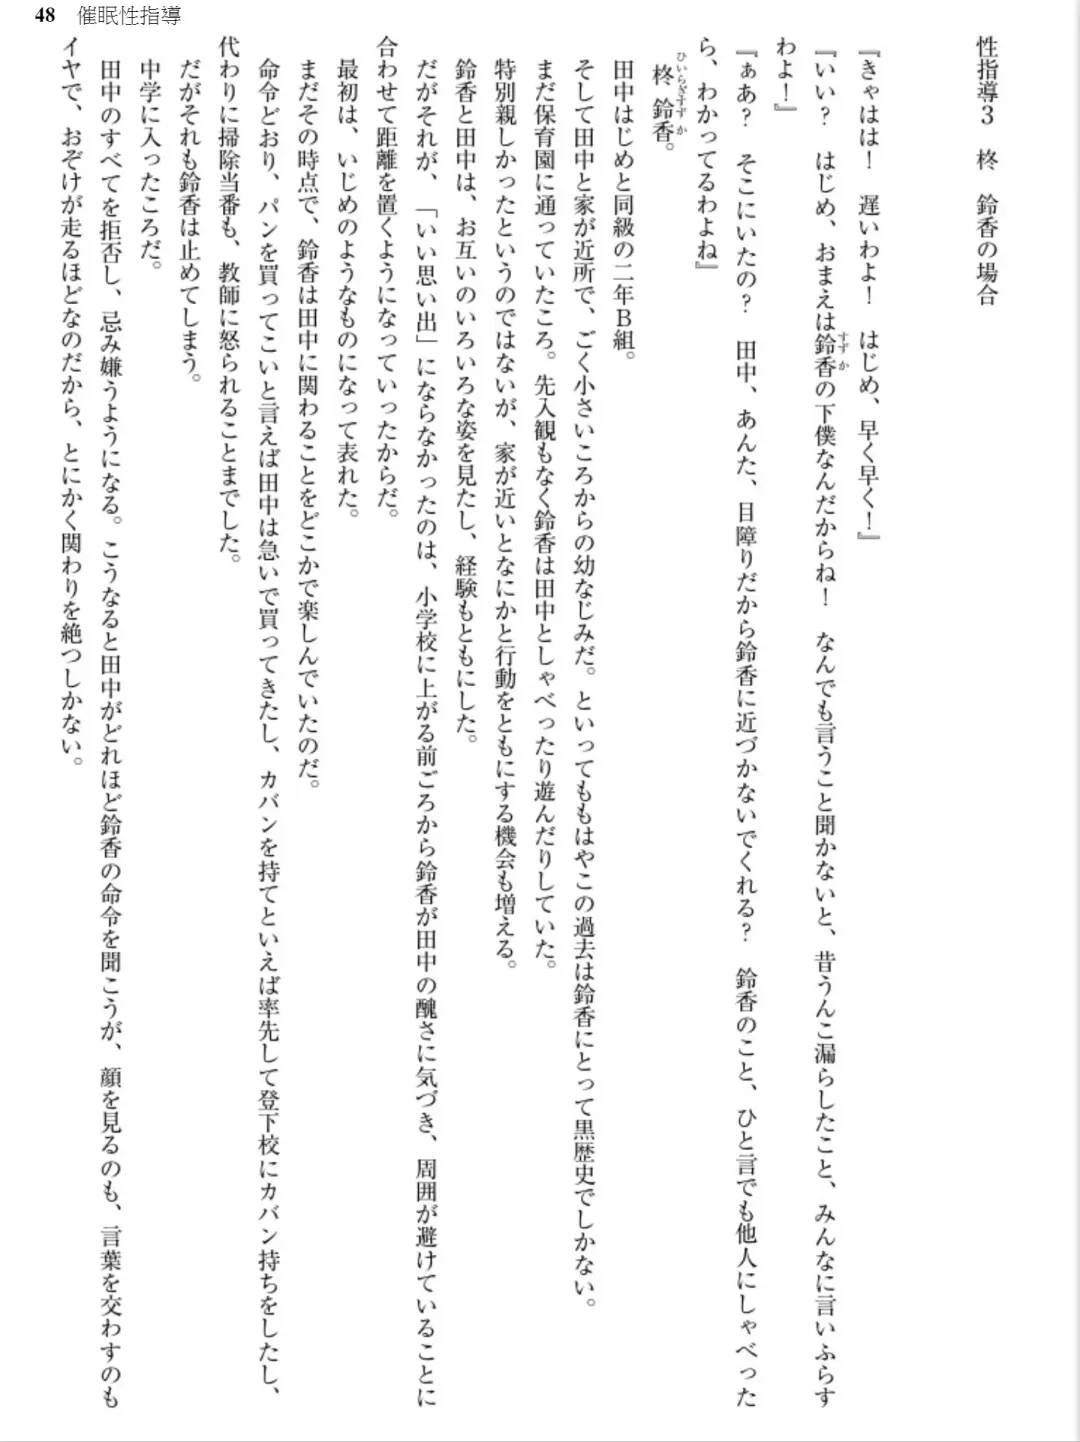 48 催眠性指導
性指導３　柊　鈴香の場合
『きゃはは！　遅いわよ！　はじめ、早く早く！』
『いい？　はじめ、おまえは鈴香の下僕なんだからね！　なんでも言うこと聞かないと、昔うんこ漏らしたこと、みんなに言いふらす
わよ！』
『ぁあ？　そこにいたの？　田中、あんた、目障りだから鈴香に近づかないでくれる？　鈴香のこと、ひと言でも他人にしゃべった
ら、わかってるわよね』
柊 鈴香。
田中はじめと同級の二年Ｂ組。
そして田中と家が近所で、ごく小さいころからの幼なじみだ。といってももはやこの過去は鈴香にとって黒歴史でしかない。
まだ保育園に通っていたころ。先入観もなく鈴香は田中としゃべったり遊んだりしていた。
特別親しかったというのではないが、家が近いとなにかと行動をともにする機会も増える。
鈴香と田中は、お互いのいろいろな姿を見たし、経験もともにした。
だがそれが、「いい思い出」にならなかったのは、小学校に上がる前ごろから鈴香が田中の醜さに気づき、周囲が避けていることに
合わせて距離を置くようになっていったからだ。
最初は、いじめのようなものになって表れた。
まだその時点で、鈴香は田中に関わることをどこかで楽しんでいたのだ。
命令どおり、パンを買ってこいと言えば田中は急いで買ってきたし、カバンを持てといえば率先して登下校にカバン持ちをしたし、
代わりに掃除当番も、教師に怒られることまでした。
だがそれも鈴香は止めてしまう。
中学に入ったころだ。
田中のすべてを拒否し、忌み嫌うようになる。こうなると田中がどれほど鈴香の命令を聞こうが、顔を見るのも、言葉を交わすのも
イヤで、おぞけが走るほどなのだから、とにかく関わりを絶つしかない。